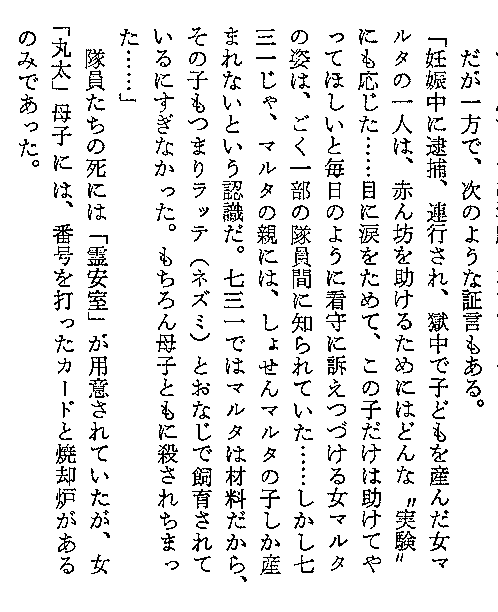 だが一方で、次のような証言もある。
「妊娠中に逮捕、連行され、獄中で子どもを産んだ女マ
ルタの一人は、赤ん坊を助けるためにはどんな〝実験〟
にも応じた……目に涙をためて、この子だけは助けてや
ってほしいと毎日のように看守に訴えつづける女マルタ
の姿は、ごく一部の隊員間に知られていた……しかし七
三一じゃ、マルタの親には、しょせんマルタの子しか産
まれないという認識だ。七三一ではマルタは材料だから、
その子もつまりラッテ（ネズミ）とおなじで飼育されて
いるにすぎなかった。もちろん母子ともに殺されちまっ
た……」
隊員たちの死には「霊安室」が用意されていたが、女
「丸太」母子には、番号を打ったカードと焼却炉がある
のみであった。